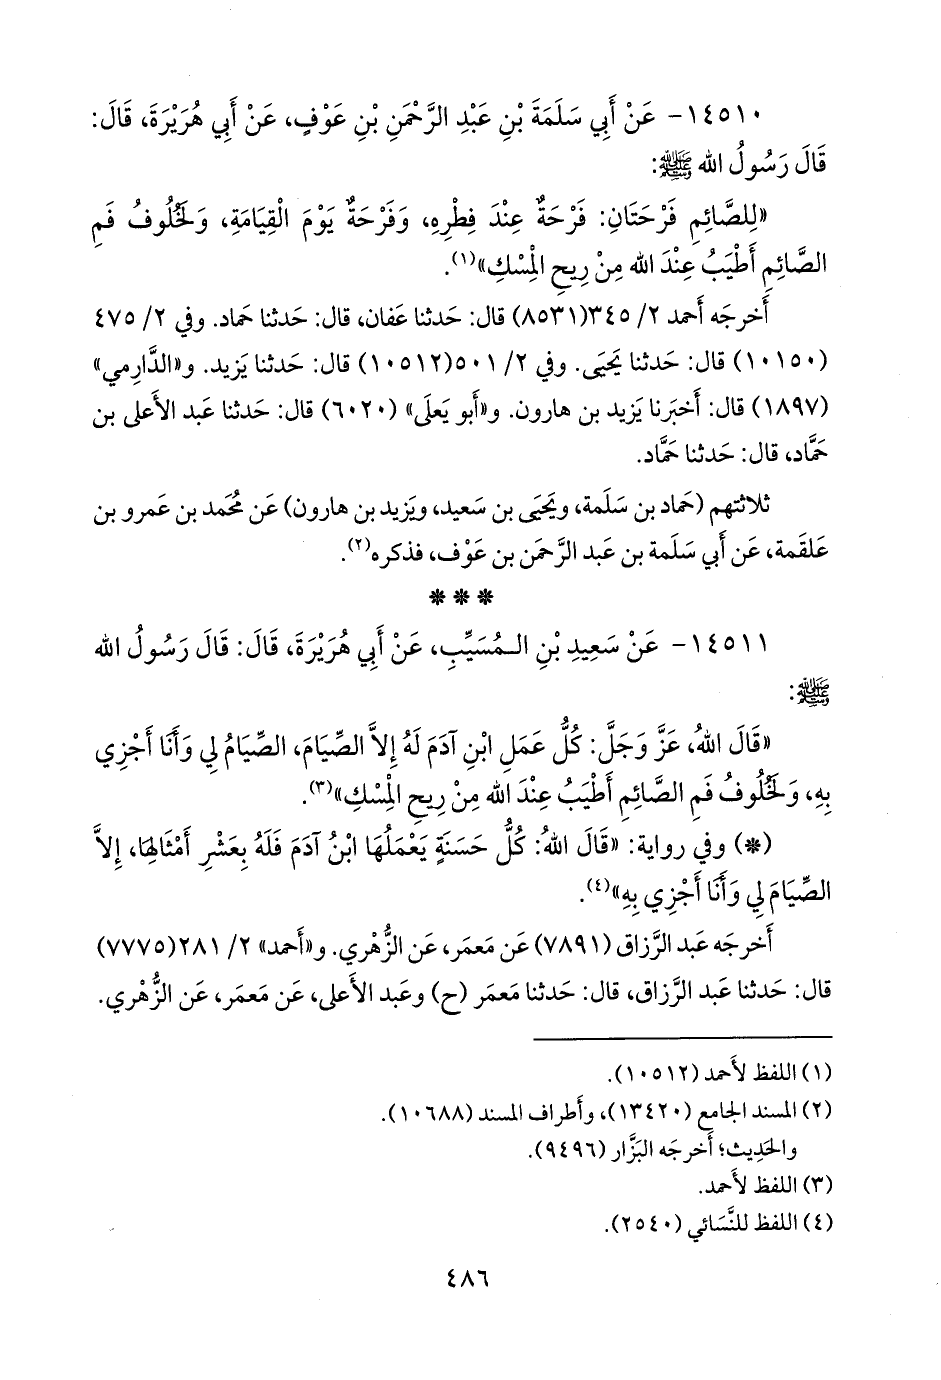 ١٤٥١٠- عَنْ أَبِي سَلَمَةَ بْنِ عَبْدِ الرَّحْمَنِ بْنِ عَوْفٍ، عَنْ أَبِي هُرَيْرَةَ، قَالَ:
قَالَ رَسُولُ الله ﷺ:
«لِلصَّائِمِ فَرْحَتَانِ: فَرْحَةٌ عِنْدَ فِطْرِهِ، وَفَرْحَةٌ يَوْمَ الْقِيَامَةِ، وَلَخُلُوفُ فَمِ
الصَّائِمِ أَطْيَبُ عِنْدَ الله مِنْ رِيحِ الْمِسْكِ»(١).
أَخرجَه أَحمد ٢/ ٣٤٥(٨٥٣١) قال: حَدثنا عَفان، قال: حَدثنا حَماد. وفي ٢/ ٤٧٥
(١٠١٥٠) قال: حَدثنا يَحيَى. وفي ٢/ ٥٠١(١٠٥١٢) قال: حَدثنا يَزيد. و«الدَّارِمي»
(١٨٩٧) قال: أَخبَرنا يَزيد بن هارون. و«أَبو يَعلَى» (٦٠٢٠) قال: حَدثنا عَبد الأَعلى بن
حَمَّاد، قال: حَدثنا حَمَّاد.
ثلاثتهم (حَماد بن سَلَمة، ويَحيَى بن سَعيد، ويَزيد بن هارون) عَن مُحمد بن عَمرو بن
عَلقَمة، عَن أَبي سَلَمة بن عَبد الرَّحمَن بن عَوْف، فذكره(٢).
* * *
١٤٥١١- عَنْ سَعِيدِ بْنِ الـمُسَيِّبِ، عَنْ أَبِي هُرَيْرَةَ، قَالَ: قَالَ رَسُولُ الله
ﷺ:
«قَالَ اللهُ، عَزَّ وَجَلَّ: كُلُّ عَمَلِ ابْنِ آدَمَ لَهُ إِلاَّ الصِّيَامَ، الصِّيَامُ لِي وَأَنَا أَجْزِي
بِهِ، وَلَخُلُوفُ فَمِ الصَّائِمِ أَطْيَبُ عِنْدَ الله مِنْ رِيحِ الْمِسْكِ»(٣).
(*) وفي رواية: «قَالَ اللهُ: كُلُّ حَسَنَةٍ يَعْمَلُهَا ابْنُ آدَمَ فَلَهُ بِعَشْرِ أَمْثَالِهَا، إِلاَّ
الصِّيَامَ لِي وَأَنَا أَجْزِي بِهِ»(٤).
أَخرجَه عَبد الرَّزاق (٧٨٩١) عَن مَعمَر، عَن الزُّهْري. و«أَحمد» ٢/ ٢٨١(٧٧٧٥)
قال: حَدثنا عَبد الرَّزاق، قال: حَدثنا مَعمَر (ح) وعَبد الأَعلى، عَن مَعمَر، عَن الزُّهْري.
(١) اللفظ لأَحمد (١٠٥١٢).
(٢) المسند الجامع (١٣٤٢٠)، وأَطراف المسند (١٠٦٨٨).
والحَدِيث؛ أَخرجَه البَزَّار (٩٤٩٦).
(٣) اللفظ لأَحمد.
(٤) اللفظ للنَّسَائي (٢٥٤٠).
٤٨٦